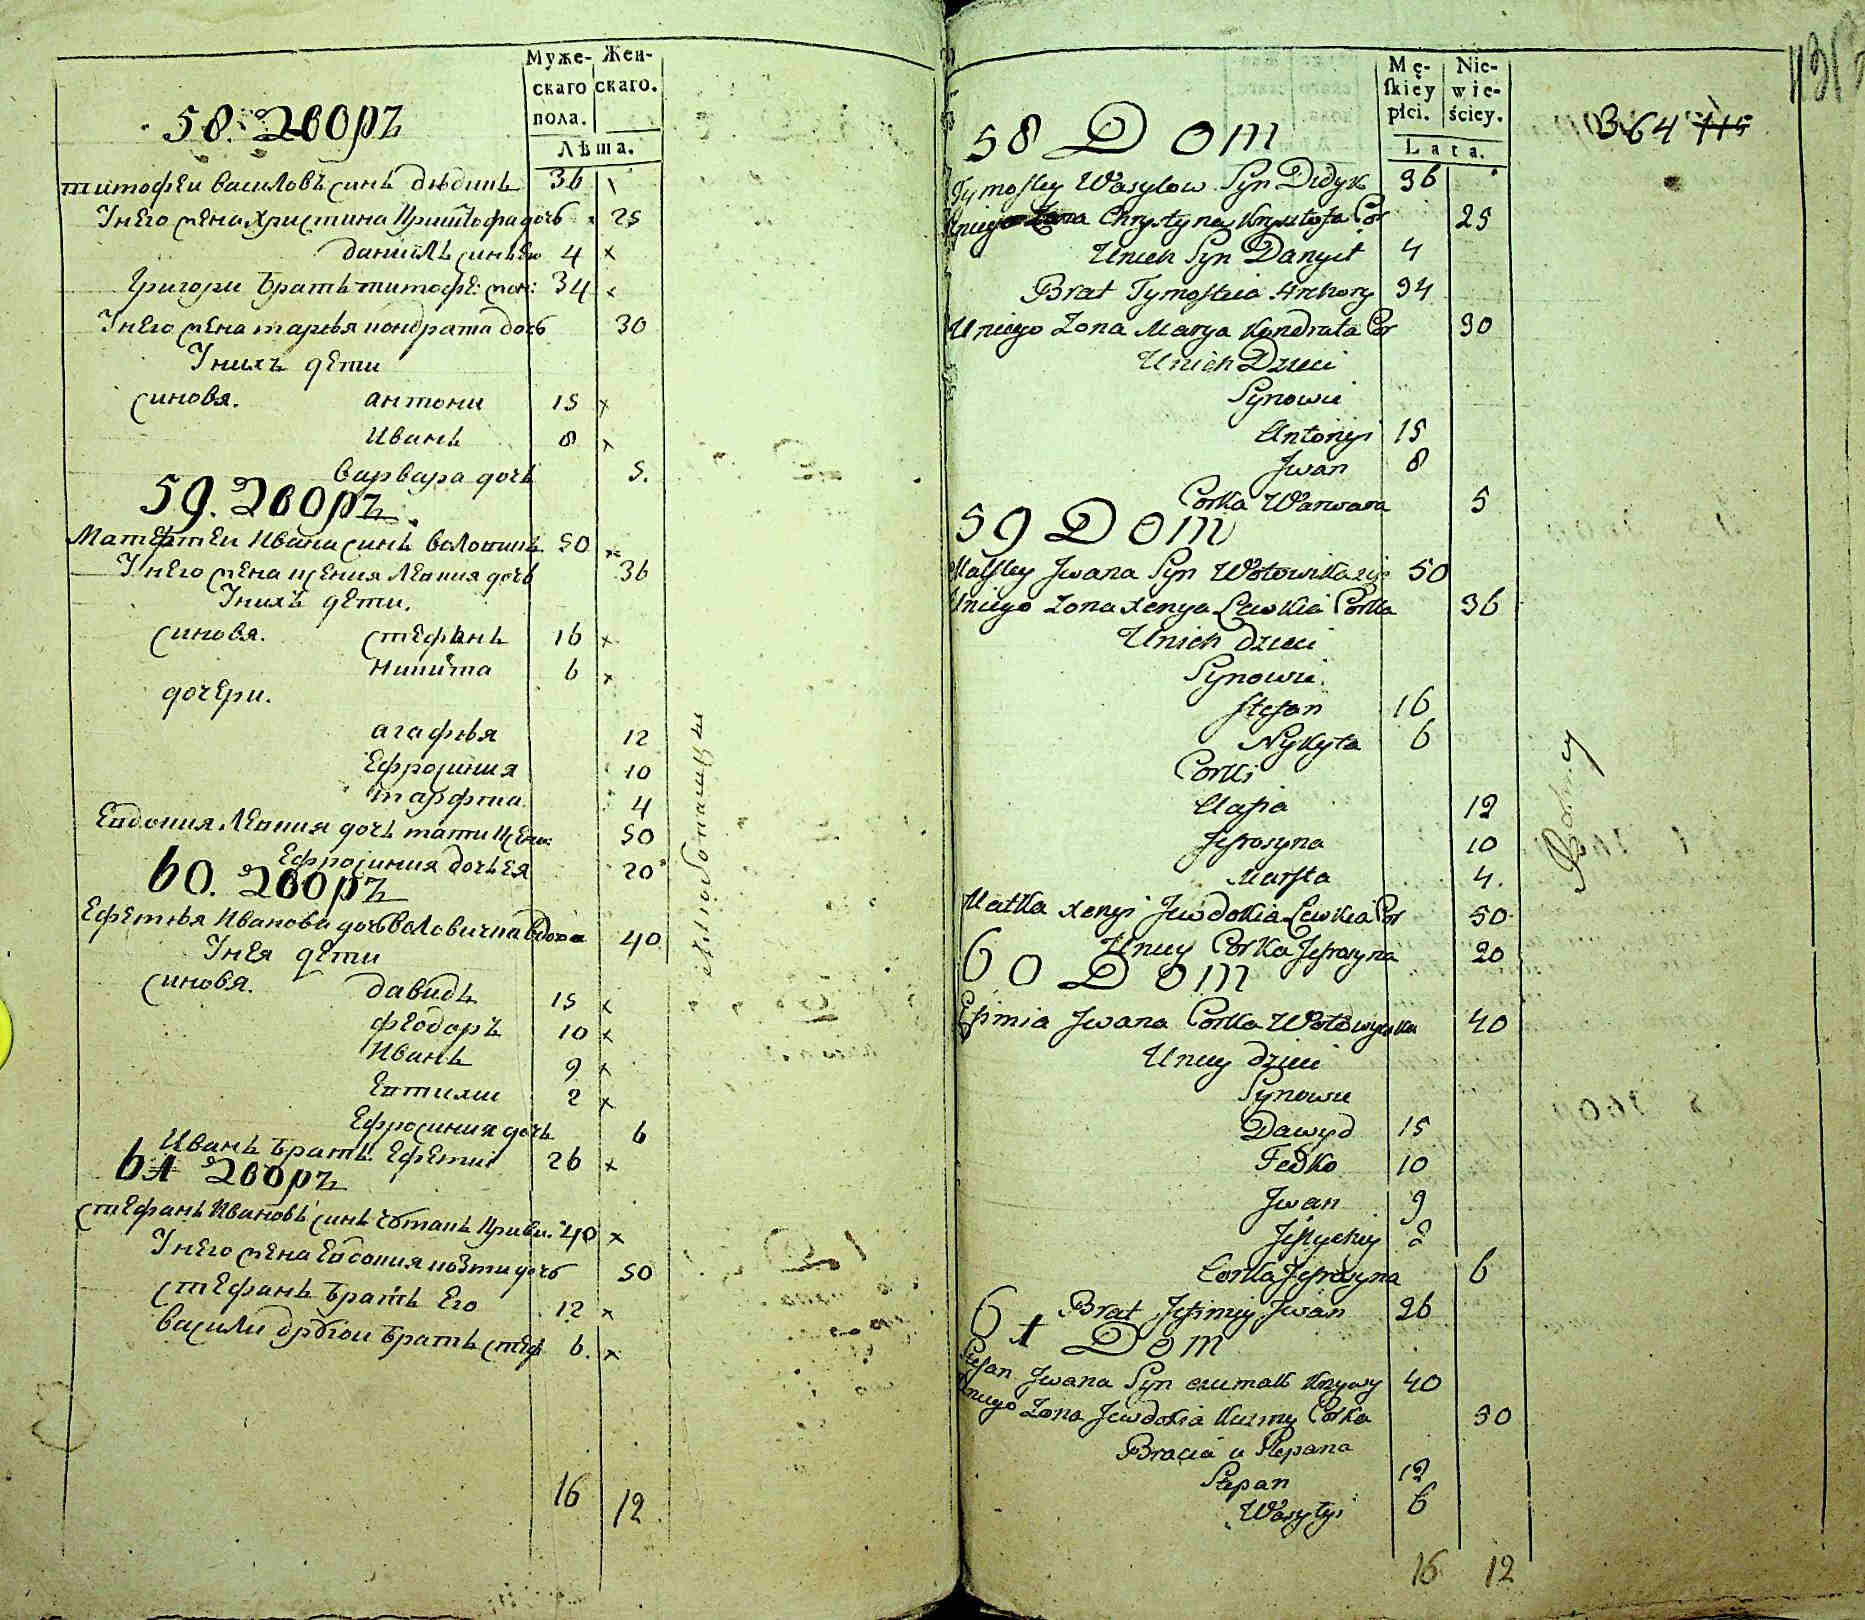 Муже-
скаго
пола.
Жен-
скаго.
Лѣта.
58. Дворъ
тимофеи василовъ синъ дѣдикъ 36
Унего жена христина криштофа дочь 25
данїилъ синъ Его 4
Григори братъ тимофе: 34
Унего жена маръя кондрата дочь 30
Унихъ дети
синовя. антони 15
Иванъ 8
варвара дочъ 5.
59. Дворъ
Матфтеи Ивана синъ 50
Унего жена ксения левкия дочъ 36
Унихъ дети.
синовя. стефанъ 16
никита 6
дочери.
агафия 12
Ефросиния 10
марфта 4
Евдокия левкия дочъ мати 50
Ефросиния дочъ Ея 20
60. Дворъ
Ефемъя Иванова дочъ вдова 40
Унея дети
синовя. давидъ 15
феодоръ 10
Иванъ 9
Евтихи 2
Ефросиния дочъ 6
Иванъ братъ Ефеми 26
61 Дворъ
стефанъ Ивановъ синъ 40
Унего жена Евдокия козми дочъ 50
стефанъ братъ Его 12
василии другои братъ стеф 6.
16 12
Mę-
skiey
płci.
Nie-
wie-
ściey.
Lata.
364 115
58 Dom
Tymofiey Wasylow Syn Didyk 36
Uniego Zona Chrystyna Krysztofa Cor 25
Unich Syn Danyił 4
Brat Tymofieia Hrehory 34
Uniego Zona Marya Kondrata Cor 30
Unich Dzieci
Synowie
Antonyi 15
Jwan 8
Corka Warwara 5
59 Dom
Matfiey Jwana Syn 50
Uniego Zona Xenya Lewkia Corka 36
Unich Dzieci
Synowie.
Stefan 16
Nykyta 6
Corki
Aafia 12
Jefrosyna 10
Marfta 4.
Matka Xenyi Jewdokia Lewkia Cor 50
Uniey Corka Jefrosyna 20
60 Dom
Efimia Jwana Corka 40
Uniey dzieci
Synowie
Dawyd 15
Fedko 10
Jwan 9
Jeftychiy 2
Corka Jefrosyna 6
Brat Jefimiy Jwan 26
61 Dom
Stefan Jwana Syn czumak Krzywy 40
Uniego Zona Jewdokia Kuzmy Corka 30
Bracia u Stepana
Stepan 12
Wasylyi 6
16 12